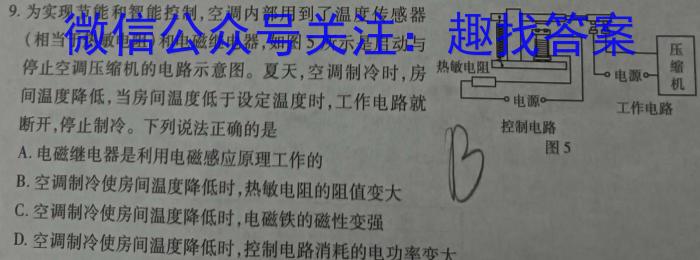 9. 为实现节能和智能控制,空调内部用到了温度传感器
(相当于热敏电阻)和电磁继电器,如图5所示是启动与
微信公众号关注：趣找答案
停止空调压缩机的电路示意图。夏天,空调制冷时,房
间温度降低,当房间温度低于设定温度时,工作电路就
断开,停止制冷。下列说法正确的是
A. 电磁继电器是利用电磁感应原理工作的
B. 空调制冷使房间温度降低时,热敏电阻的阻值变大
C. 空调制冷使房间温度降低时,电磁铁的磁性变强
D. 空调制冷使房间温度降低时,控制电路消耗的电功率变大
热敏电阻
电源
控制电路
电源
工作电路
压缩机
图5
B